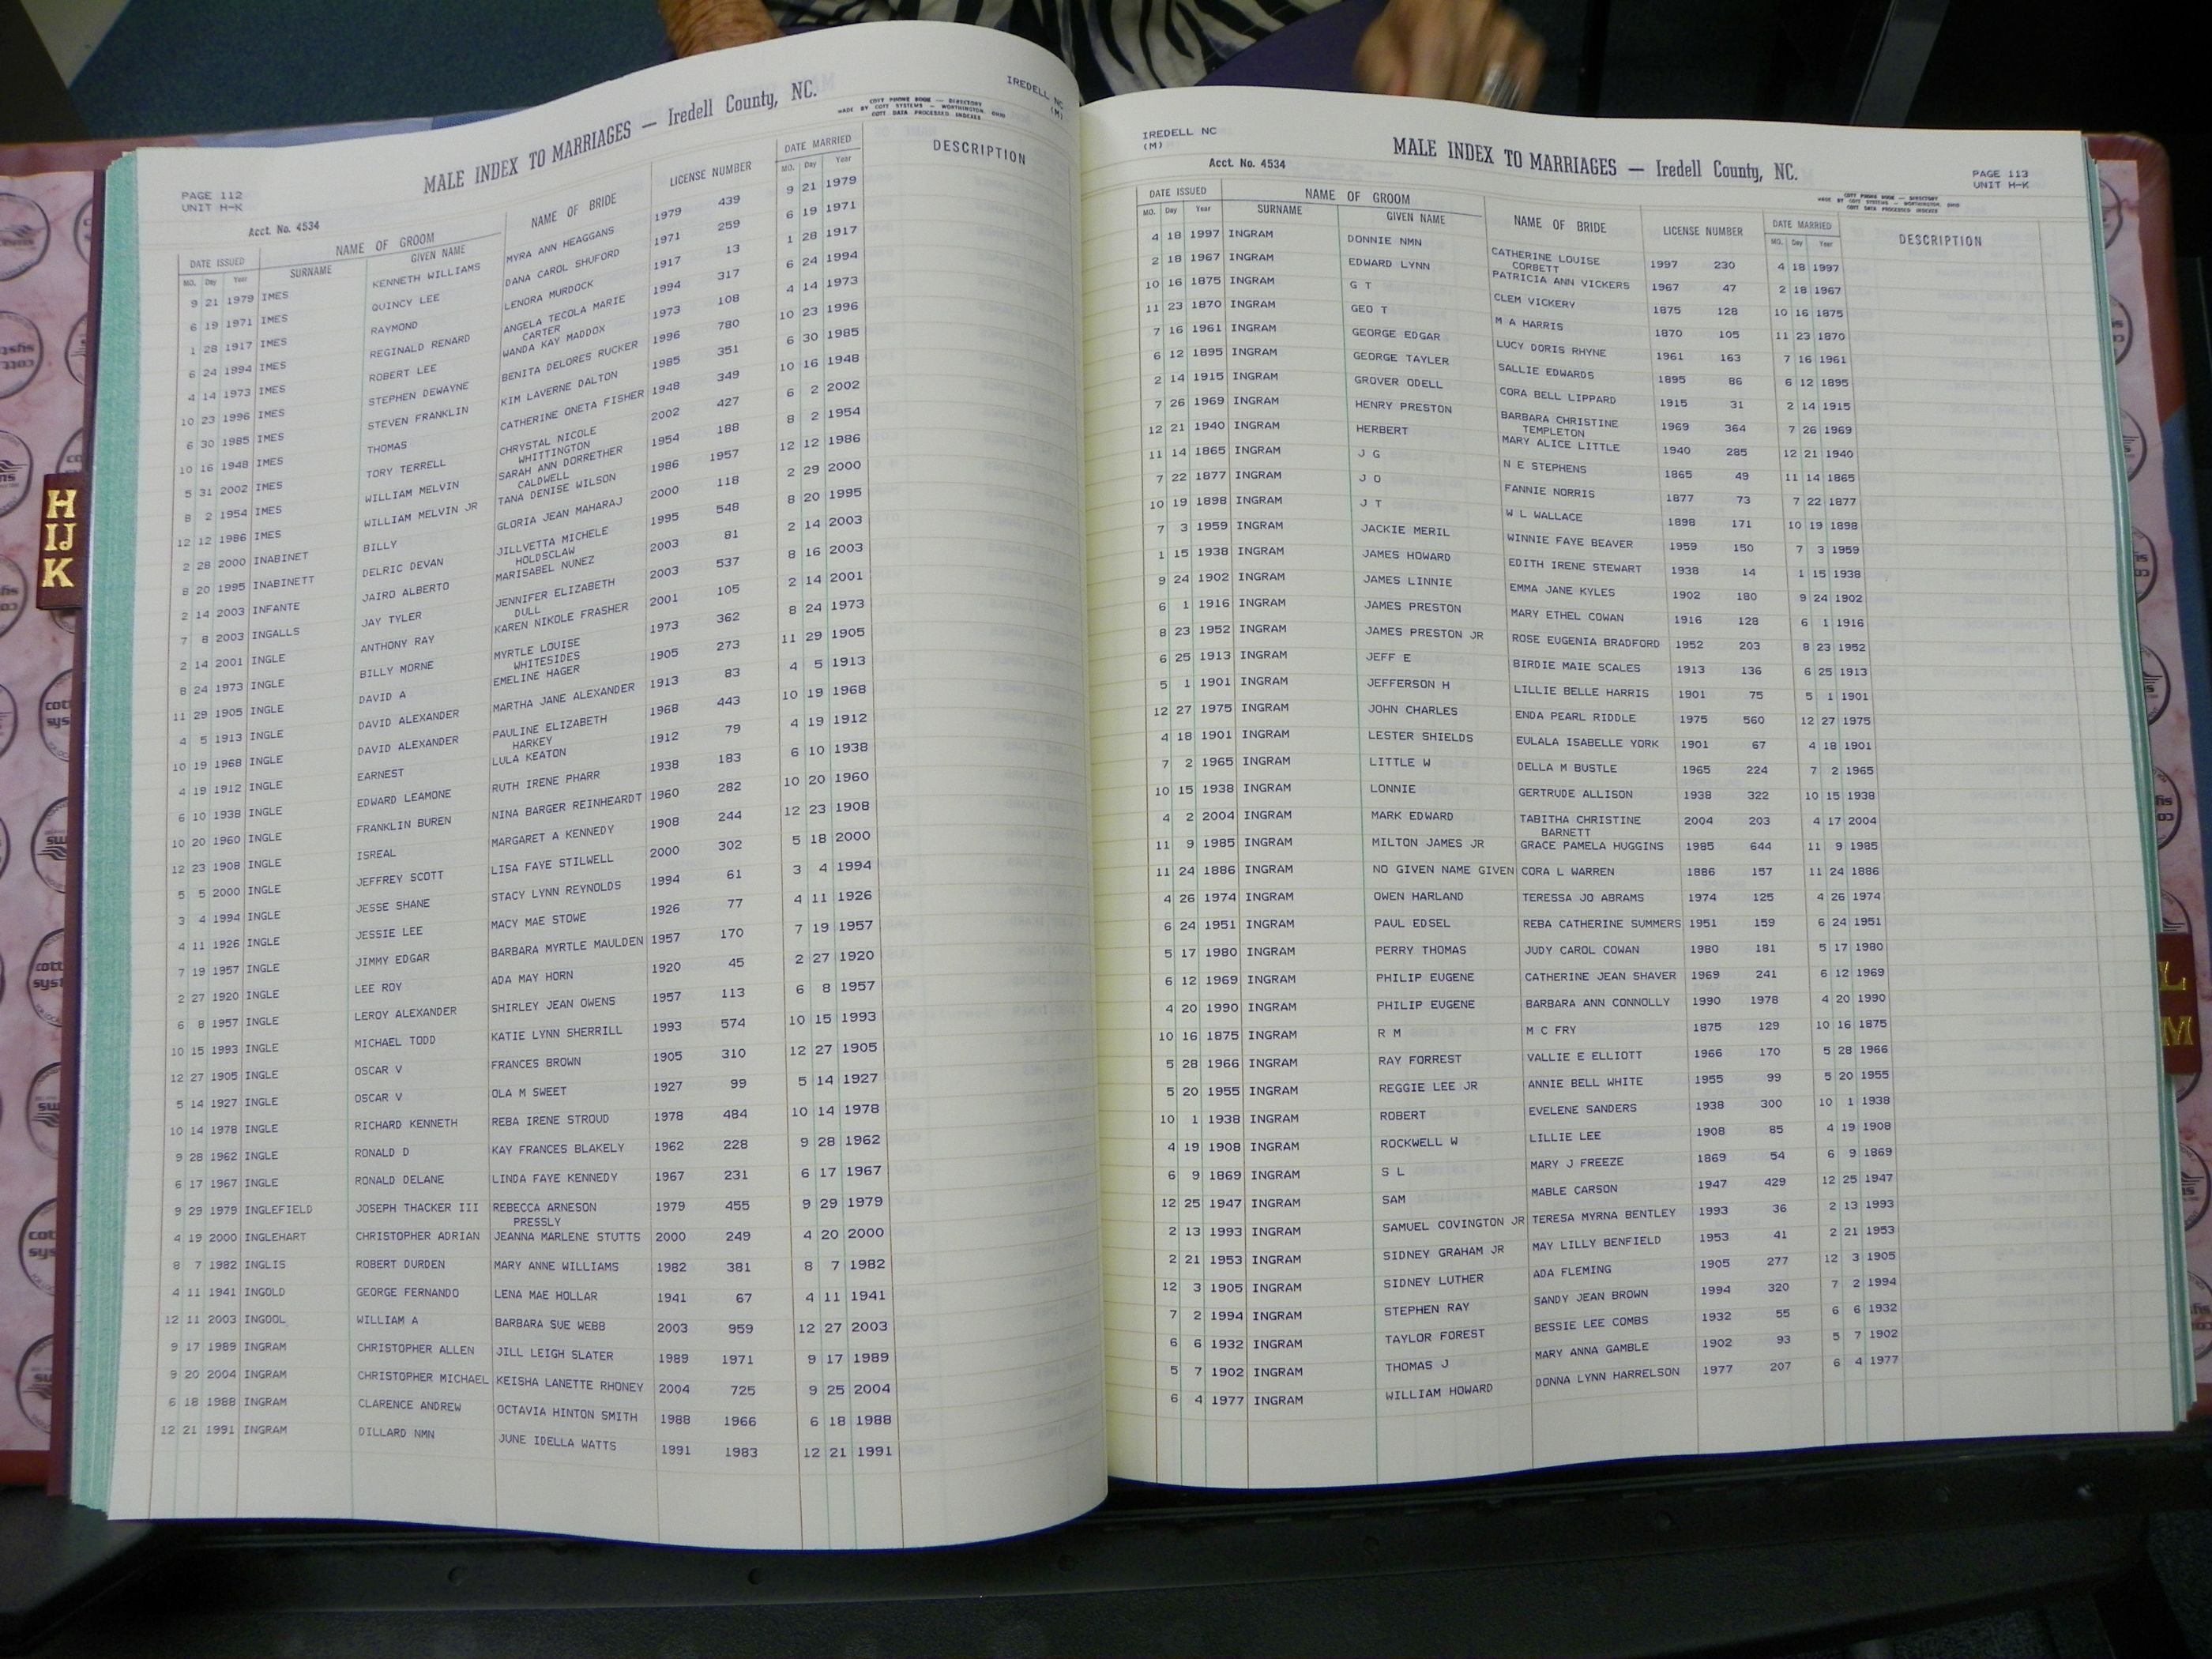 IREDELL NC
(M)
MALE INDEX TO MARRIAGES — Iredell County, NC.
COTT PHONE BOOK — DIRECTORY
MADE BY COTT SYSTEMS — WORTHINGTON, OHIO
COTT DATA PROCESSED INDEXES
PAGE 112
UNIT H-K
Acct. No. 4534
DATE ISSUED NAME OF GROOM NAME OF BRIDE LICENSE NUMBER DATE MARRIED DESCRIPTION
MO. Day Year SURNAME GIVEN NAME MO. Day Year
9 21 1979 IMES KENNETH WILLIAMS MYRA ANN HEAGGANS 1979 439 9 21 1979
6 19 1971 IMES QUINCY LEE DANA CAROL SHUFORD 1971 259 6 19 1971
1 28 1917 IMES RAYMOND LENORA MURDOCK 1917 13 1 28 1917
6 24 1994 IMES REGINALD RENARD ANGELA TECOLA MARIE 1994 317 6 24 1994
CARTER
4 14 1973 IMES ROBERT LEE WANDA KAY MADDOX 1973 108 4 14 1973
10 23 1996 IMES STEPHEN DEWAYNE BENITA DELORES RUCKER 1996 780 10 23 1996
6 30 1985 IMES STEVEN FRANKLIN KIM LAVERNE DALTON 1985 351 6 30 1985
10 16 1948 IMES THOMAS CATHERINE ONETA FISHER 1948 349 10 16 1948
5 31 2002 IMES TORY TERRELL CHRYSTAL NICOLE 2002 427 6 2 2002
WHITTINGTON
8 2 1954 IMES WILLIAM MELVIN SARAH ANN DORRETHER 1954 188 8 2 1954
CALDWELL
12 12 1986 IMES WILLIAM MELVIN JR TANA DENISE WILSON 1986 1957 12 12 1986
2 28 2000 INABINET BILLY GLORIA JEAN MAHARAJ 2000 118 2 29 2000
8 20 1995 INABINETT DELRIC DEVAN JILLVETTA MICHELE 1995 548 8 20 1995
HOLDSCLAW
2 14 2003 INFANTE JAIRO ALBERTO MARISABEL NUNEZ 2003 81 2 14 2003
7 8 2003 INGALLS JAY TYLER JENNIFER ELIZABETH 2003 537 8 16 2003
DULL
2 14 2001 INGLE ANTHONY RAY KAREN NIKOLE FRASHER 2001 105 2 14 2001
8 24 1973 INGLE BILLY MORNE MYRTLE LOUISE 1973 362 8 24 1973
WHITESIDES
11 29 1905 INGLE DAVID A EMELINE HAGER 1905 273 11 29 1905
4 5 1913 INGLE DAVID ALEXANDER MARTHA JANE ALEXANDER 1913 83 4 5 1913
10 19 1968 INGLE DAVID ALEXANDER PAULINE ELIZABETH 1968 443 10 19 1968
HARKEY
4 19 1912 INGLE EARNEST LULA KEATON 1912 79 4 19 1912
6 10 1938 INGLE EDWARD LEAMONE RUTH IRENE PHARR 1938 183 6 10 1938
10 20 1960 INGLE FRANKLIN BUREN NINA BARGER REINHEARDT 1960 282 10 20 1960
12 23 1908 INGLE ISREAL MARGARET A KENNEDY 1908 244 12 23 1908
5 5 2000 INGLE JEFFREY SCOTT LISA FAYE STILWELL 2000 302 5 18 2000
3 4 1994 INGLE JESSE SHANE STACY LYNN REYNOLDS 1994 61 3 4 1994
4 11 1926 INGLE JESSIE LEE MACY MAE STOWE 1926 77 4 11 1926
7 19 1957 INGLE JIMMY EDGAR BARBARA MYRTLE MAULDEN 1957 170 7 19 1957
2 27 1920 INGLE LEE ROY ADA MAY HORN 1920 45 2 27 1920
6 8 1957 INGLE LEROY ALEXANDER SHIRLEY JEAN OWENS 1957 113 6 8 1957
10 15 1993 INGLE MICHAEL TODD KATIE LYNN SHERRILL 1993 574 10 15 1993
12 27 1905 INGLE OSCAR V FRANCES BROWN 1905 310 12 27 1905
5 14 1927 INGLE OSCAR V OLA M SWEET 1927 99 5 14 1927
10 14 1978 INGLE RICHARD KENNETH REBA IRENE STROUD 1978 484 10 14 1978
9 28 1962 INGLE RONALD D KAY FRANCES BLAKELY 1962 228 9 28 1962
6 17 1967 INGLE RONALD DELANE LINDA FAYE KENNEDY 1967 231 6 17 1967
9 29 1979 INGLEFIELD JOSEPH THACKER III REBECCA ARNESON 1979 455 9 29 1979
PRESSLY
4 19 2000 INGLEHART CHRISTOPHER ADRIAN JEANNA MARLENE STUTTS 2000 249 4 20 2000
8 7 1982 INGLIS ROBERT DURDEN MARY ANNE WILLIAMS 1982 381 8 7 1982
4 11 1941 INGOLD GEORGE FERNANDO LENA MAE HOLLAR 1941 67 4 11 1941
12 11 2003 INGOOL WILLIAM A BARBARA SUE WEBB 2003 959 12 27 2003
9 17 1989 INGRAM CHRISTOPHER ALLEN JILL LEIGH SLATER 1989 1971 9 17 1989
9 20 2004 INGRAM CHRISTOPHER MICHAEL KEISHA LANETTE RHONEY 2004 725 9 25 2004
6 18 1988 INGRAM CLARENCE ANDREW OCTAVIA HINTON SMITH 1988 1966 6 18 1988
12 21 1991 INGRAM DILLARD NMN JUNE IDELLA WATTS 1991 1983 12 21 1991
H
IJ
K
IREDELL NC
(M)
MALE INDEX TO MARRIAGES — Iredell County, NC.
Acct. No. 4534
PAGE 113
UNIT H-K
COTT PHONE BOOK — DIRECTORY
MADE BY COTT SYSTEMS — WORTHINGTON, OHIO
COTT DATA PROCESSED INDEXES
DATE ISSUED NAME OF GROOM NAME OF BRIDE LICENSE NUMBER DATE MARRIED DESCRIPTION
MO. Day Year SURNAME GIVEN NAME MO. Day Year
4 18 1997 INGRAM DONNIE NMN CATHERINE LOUISE 1997 230 4 18 1997
CORBETT
2 18 1967 INGRAM EDWARD LYNN PATRICIA ANN VICKERS 1967 47 2 18 1967
10 16 1875 INGRAM G T CLEM VICKERY 1875 128 10 16 1875
11 23 1870 INGRAM GEO T M A HARRIS 1870 105 11 23 1870
7 16 1961 INGRAM GEORGE EDGAR LUCY DORIS RHYNE 1961 163 7 16 1961
6 12 1895 INGRAM GEORGE TAYLER SALLIE EDWARDS 1895 86 6 12 1895
2 14 1915 INGRAM GROVER ODELL CORA BELL LIPPARD 1915 31 2 14 1915
7 26 1969 INGRAM HENRY PRESTON BARBARA CHRISTINE 1969 364 7 26 1969
TEMPLETON
12 21 1940 INGRAM HERBERT MARY ALICE LITTLE 1940 285 12 21 1940
11 14 1865 INGRAM J G N E STEPHENS 1865 49 11 14 1865
7 22 1877 INGRAM J O FANNIE NORRIS 1877 73 7 22 1877
10 19 1898 INGRAM J T W L WALLACE 1898 171 10 19 1898
7 3 1959 INGRAM JACKIE MERIL WINNIE FAYE BEAVER 1959 150 7 3 1959
1 15 1938 INGRAM JAMES HOWARD EDITH IRENE STEWART 1938 14 1 15 1938
9 24 1902 INGRAM JAMES LINNIE EMMA JANE KYLES 1902 180 9 24 1902
6 1 1916 INGRAM JAMES PRESTON MARY ETHEL COWAN 1916 128 6 1 1916
8 23 1952 INGRAM JAMES PRESTON JR ROSE EUGENIA BRADFORD 1952 203 8 23 1952
6 25 1913 INGRAM JEFF E BIRDIE MAIE SCALES 1913 136 6 25 1913
5 1 1901 INGRAM JEFFERSON H LILLIE BELLE HARRIS 1901 75 5 1 1901
12 27 1975 INGRAM JOHN CHARLES ENDA PEARL RIDDLE 1975 560 12 27 1975
4 18 1901 INGRAM LESTER SHIELDS EULALA ISABELLE YORK 1901 67 4 18 1901
7 2 1965 INGRAM LITTLE W DELLA M BUSTLE 1965 224 7 2 1965
10 15 1938 INGRAM LONNIE GERTRUDE ALLISON 1938 322 10 15 1938
4 2 2004 INGRAM MARK EDWARD TABITHA CHRISTINE 2004 203 4 17 2004
BARNETT
11 9 1985 INGRAM MILTON JAMES JR GRACE PAMELA HUGGINS 1985 644 11 9 1985
11 24 1886 INGRAM NO GIVEN NAME GIVEN CORA L WARREN 1886 157 11 24 1886
4 26 1974 INGRAM OWEN HARLAND TERESSA JO ABRAMS 1974 125 4 26 1974
6 24 1951 INGRAM PAUL EDSEL REBA CATHERINE SUMMERS 1951 159 6 24 1951
5 17 1980 INGRAM PERRY THOMAS JUDY CAROL COWAN 1980 181 5 17 1980
6 12 1969 INGRAM PHILIP EUGENE CATHERINE JEAN SHAVER 1969 241 6 12 1969
4 20 1990 INGRAM PHILIP EUGENE BARBARA ANN CONNOLLY 1990 1978 4 20 1990
10 16 1875 INGRAM R M M C FRY 1875 129 10 16 1875
5 28 1966 INGRAM RAY FORREST VALLIE E ELLIOTT 1966 170 5 28 1966
5 20 1955 INGRAM REGGIE LEE JR ANNIE BELL WHITE 1955 99 5 20 1955
10 1 1938 INGRAM ROBERT EVELENE SANDERS 1938 300 10 1 1938
4 19 1908 INGRAM ROCKWELL W LILLIE LEE 1908 85 4 19 1908
6 9 1869 INGRAM S L MARY J FREEZE 1869 54 6 9 1869
12 25 1947 INGRAM SAM MABLE CARSON 1947 429 12 25 1947
2 13 1993 INGRAM SAMUEL COVINGTON JR TERESA MYRNA BENTLEY 1993 36 2 13 1993
2 21 1953 INGRAM SIDNEY GRAHAM JR MAY LILLY BENFIELD 1953 41 2 21 1953
12 3 1905 INGRAM SIDNEY LUTHER ADA FLEMING 1905 277 12 3 1905
7 2 1994 INGRAM STEPHEN RAY SANDY JEAN BROWN 1994 320 7 2 1994
6 6 1932 INGRAM TAYLOR FOREST BESSIE LEE COMBS 1932 55 6 6 1932
5 7 1902 INGRAM THOMAS J MARY ANNA GAMBLE 1902 93 5 7 1902
6 4 1977 INGRAM WILLIAM HOWARD DONNA LYNN HARRELSON 1977 207 6 4 1977
L
M